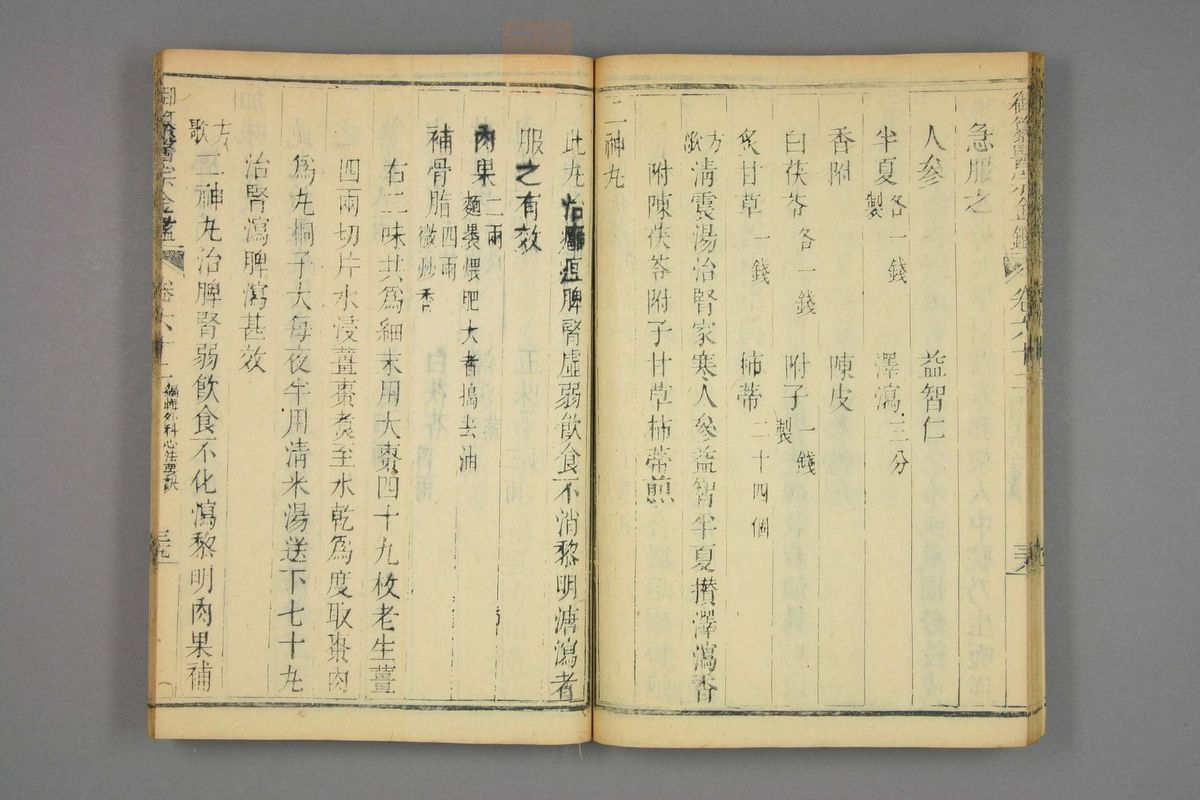 御纂醫宗金鑑 卷六十二
急服之
人參 益智仁
半夏製各一錢 澤瀉三分
香附 陳皮
白茯苓各一錢 附子製一錢
炙甘草一錢 柿蒂二十四個
方歌 清震湯治腎家寒人參益智半夏攢澤瀉香
附陳茯苓附子甘草柿蒂煎
二神丸
此丸治 疽脾腎虛弱飲食不消黎明溏瀉者
服之有效
肉果二兩麵裹煨肥大者搗去油
補骨脂四兩微炒香
右二味共為細末用大棗四十九枚老生薑
四兩切片水浸薑棗煑至水乾為度取棗肉
為丸桐子大每夜半用清米湯送下七十丸
治腎瀉脾瀉甚效
方歌 二神丸治脾腎弱飲食不化瀉黎明肉果補
御纂醫宗金鑑 卷六十二 編輯外科心法要訣